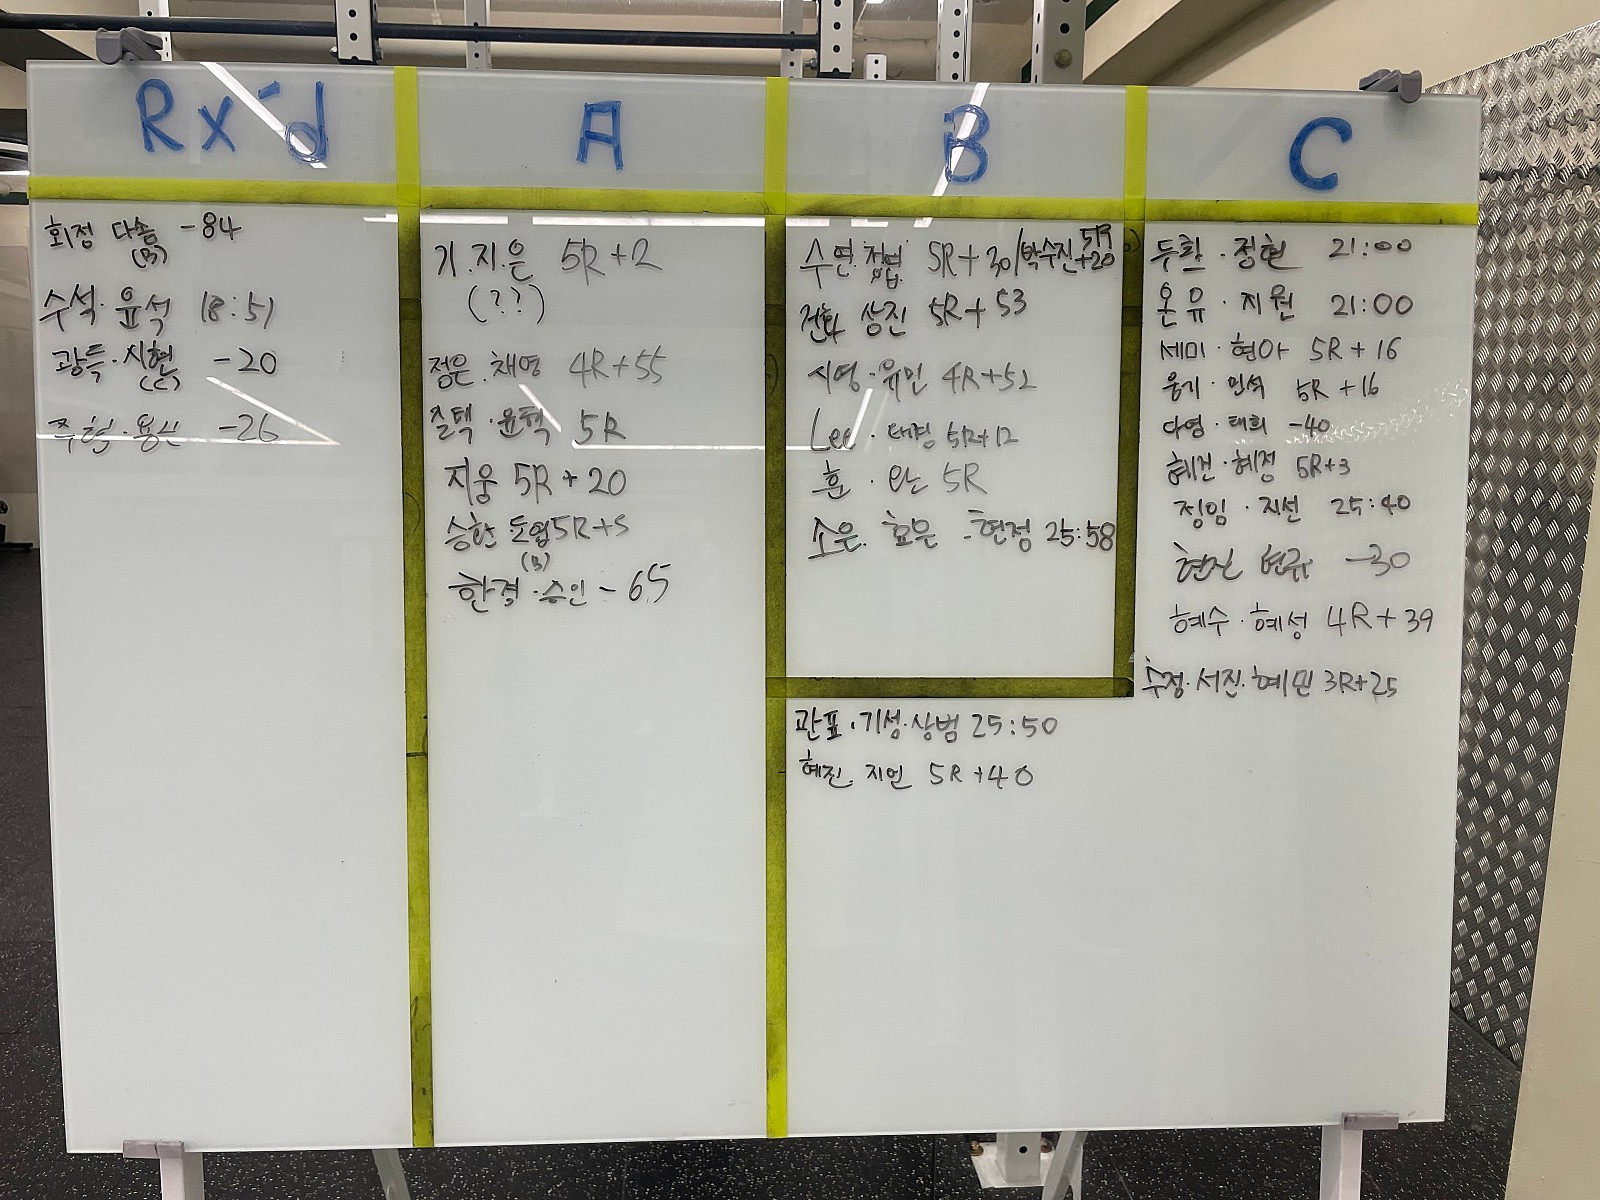 Rx'd
회정 다솜 -84
(B)
수석·윤석 18:51
광득·지현 -20
(C)
-26
A
기.지.은 5R+2
(??)
정은.채영 4R+55
윤택 5R
지웅 5R+20
승한 도엽 5R+5
(B)
한결·승인 -65
B
수연 5R+30/박수진 5R+20
상진 5R+53
지영·유민 4R+52
Lee · 태경 5R+12
훈 · 란 5R
소은. 효은 -현정 25:58
관표·기성·상범 25:50
혜진. 지언 5R+40
C
두환·정현 21:00
온유·지원 21:00
세미·현아 5R+16
웅기·민석 5R+16
다영·태희 -40
혜진·혜정 5R+3
정임·지선 25:40
-30
혜수·혜성 4R+39
수정·서진·혜민 3R+25